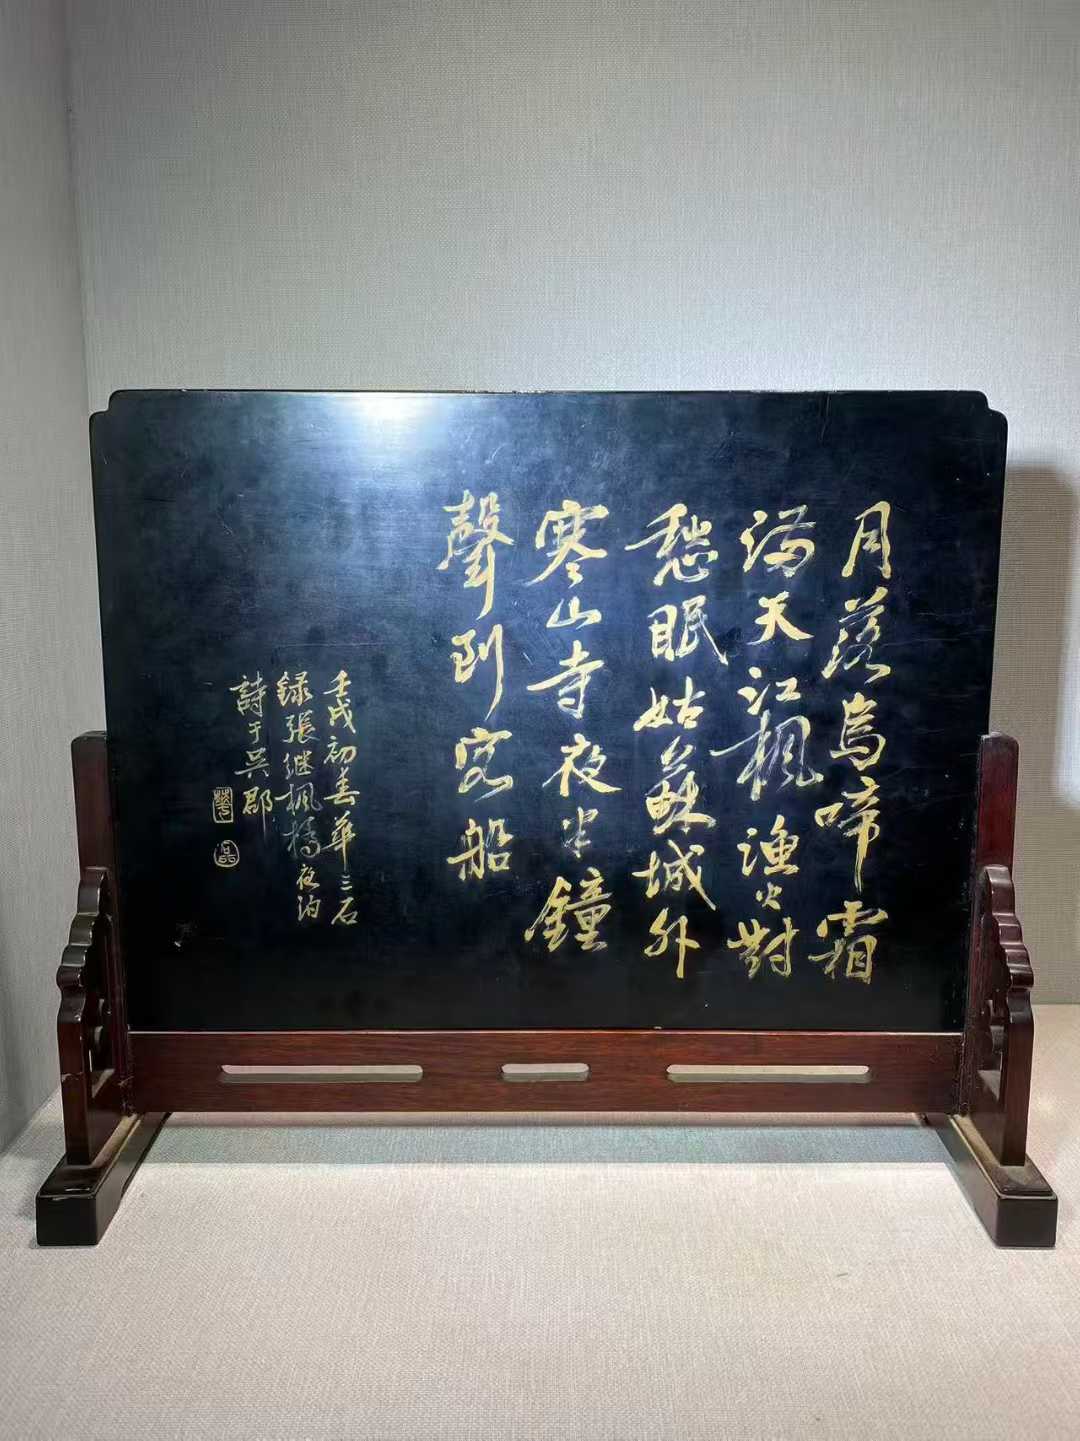 月落烏啼霜
滿天江楓漁火對
愁眠姑蘇城外
寒山寺夜半鐘
聲到客船
壬戌初春華三石
録張継楓橋夜泊
詩于吳郡
華
磊